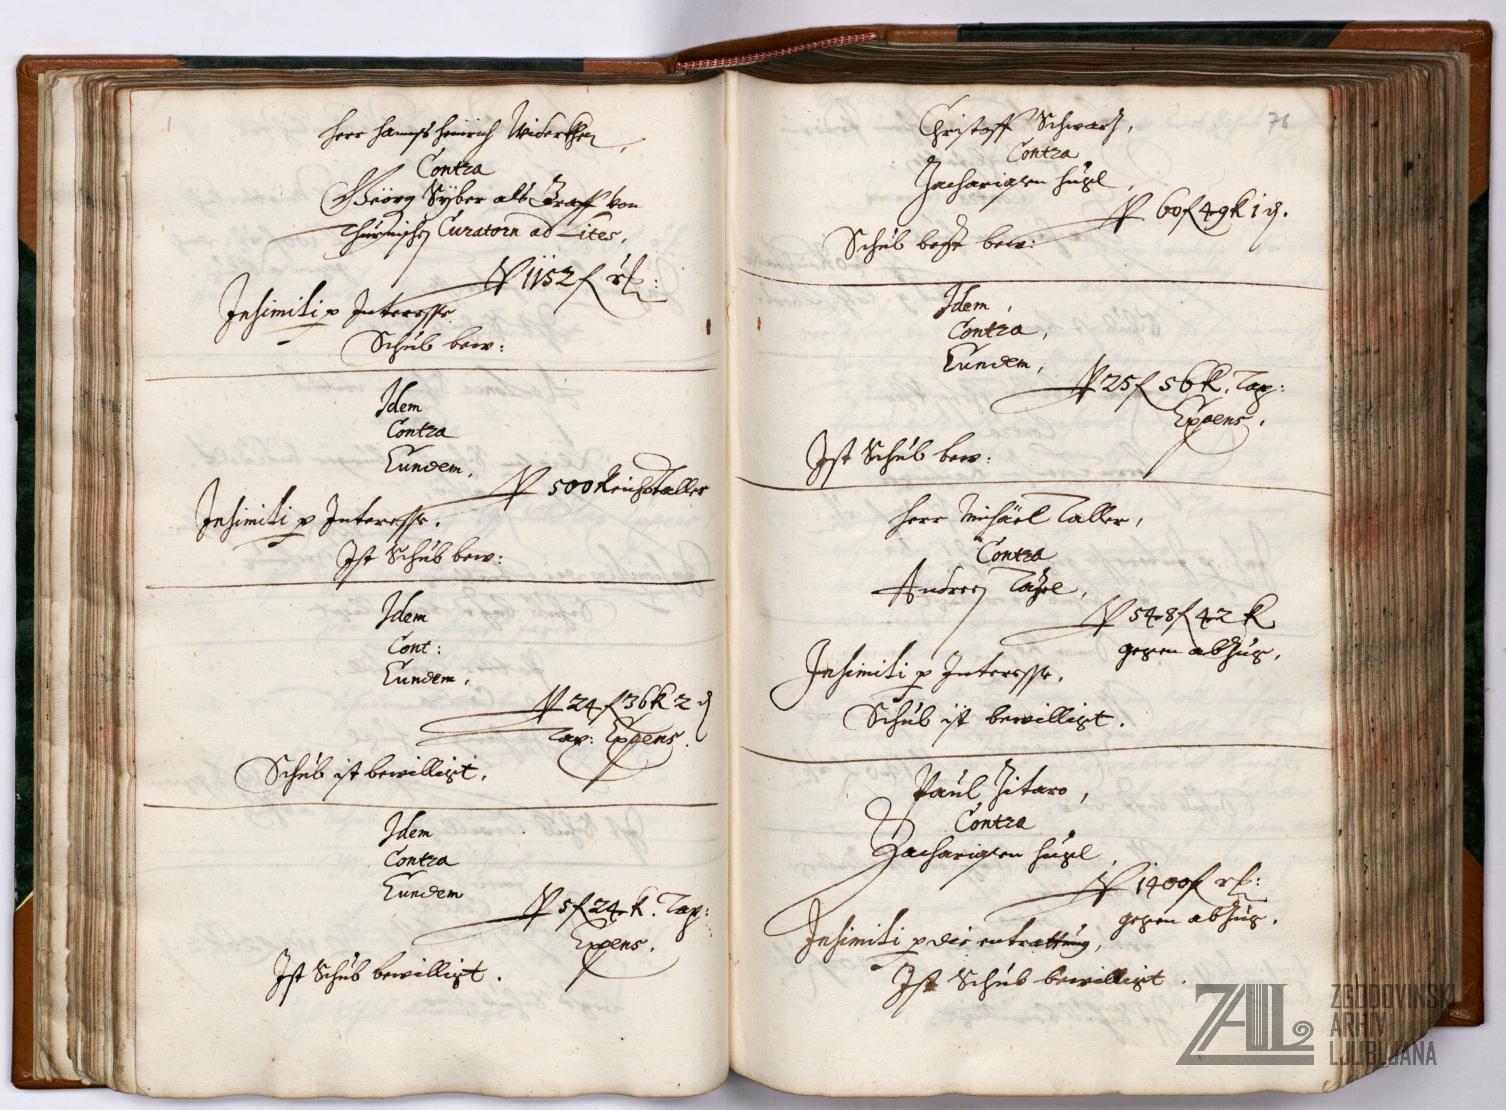 Herr Hannß Heinrich Widerkher,
Contra
Geörg Sÿber alß Graff von
Thurnischen Curatorn ad Lites,
Pr 1152 f rh:
Insimili p Interesse
Schub bew:
Idem
Contra
Eundem,
Pr 500 Reichstaller
Insimili p Interesse.
Ist Schub bew:
Idem
Cont:
Eundem,
Pr 24 f 36 k 2 d
Tax: Expens.
Schub ist bewilligt.
Idem
Contra
Eundem
Pr 5 f 24 k. Tax:
Expens.
Ist Schub bewilligt.
76
Christoff Schwarz,
Contra
Zachariaßen Hügl,
Pr 60 f 49 k 1 d.
Schub beste bew:
Idem,
Contra,
Eundem,
Pr 25 f 56 k. Tax:
Expens.
Ist Schub bew:
Herr Michäel Taller,
Contra
Andreen
Pr 548 f 42 k
gegen abzug.
Insimili p Interesse.
Schub ist bewilligt.
Paul Zitaro,
Contra
Zachariaßen Hügl,
Pr 1400 f rh:
gegen abzug.
Insimili p die entrattung,
Ist Schub bewilligt.
ZAL ZGODOVINSKI
ARHIV
LJUBLJANA